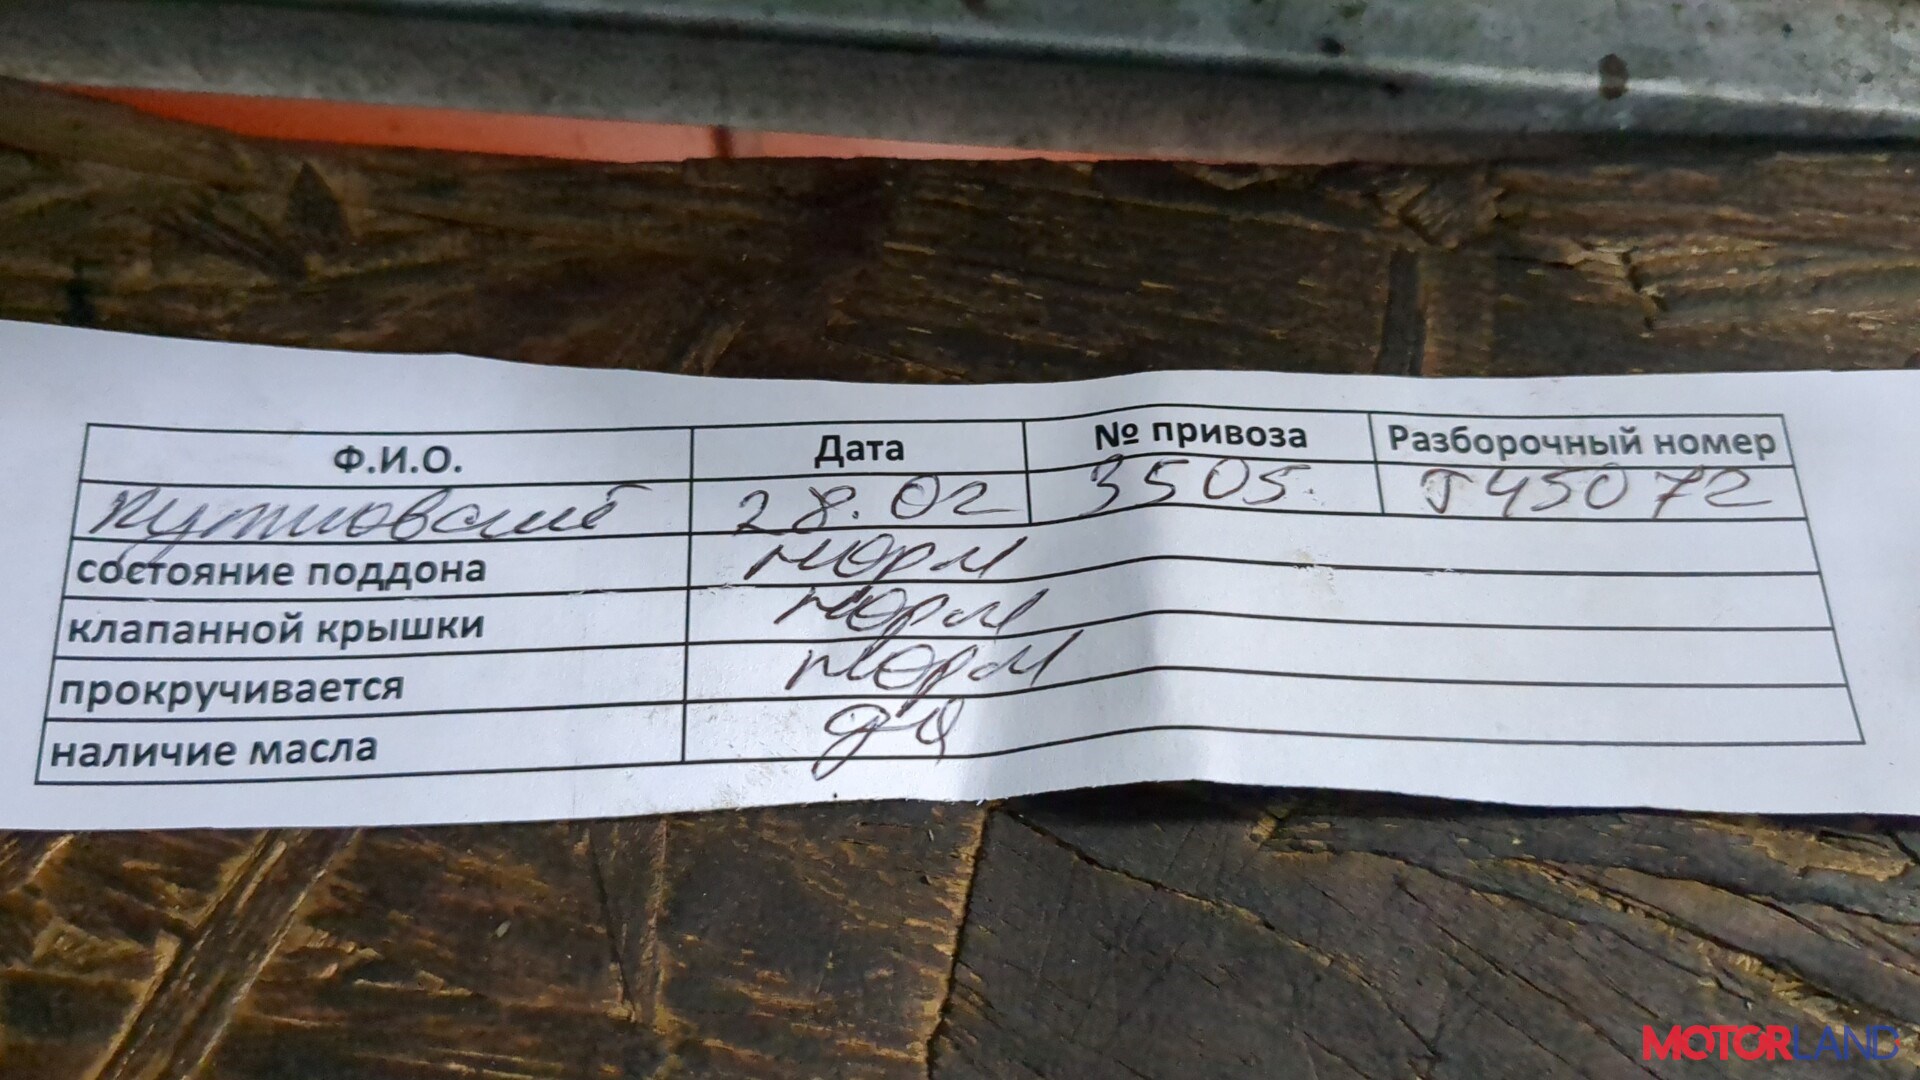 Ф.И.О. Дата № привоза Разборочный номер
28.02 3505. J45072
состояние поддона норм
клапанной крышки норм
прокручивается норм
наличие масла да
MOTORLAND